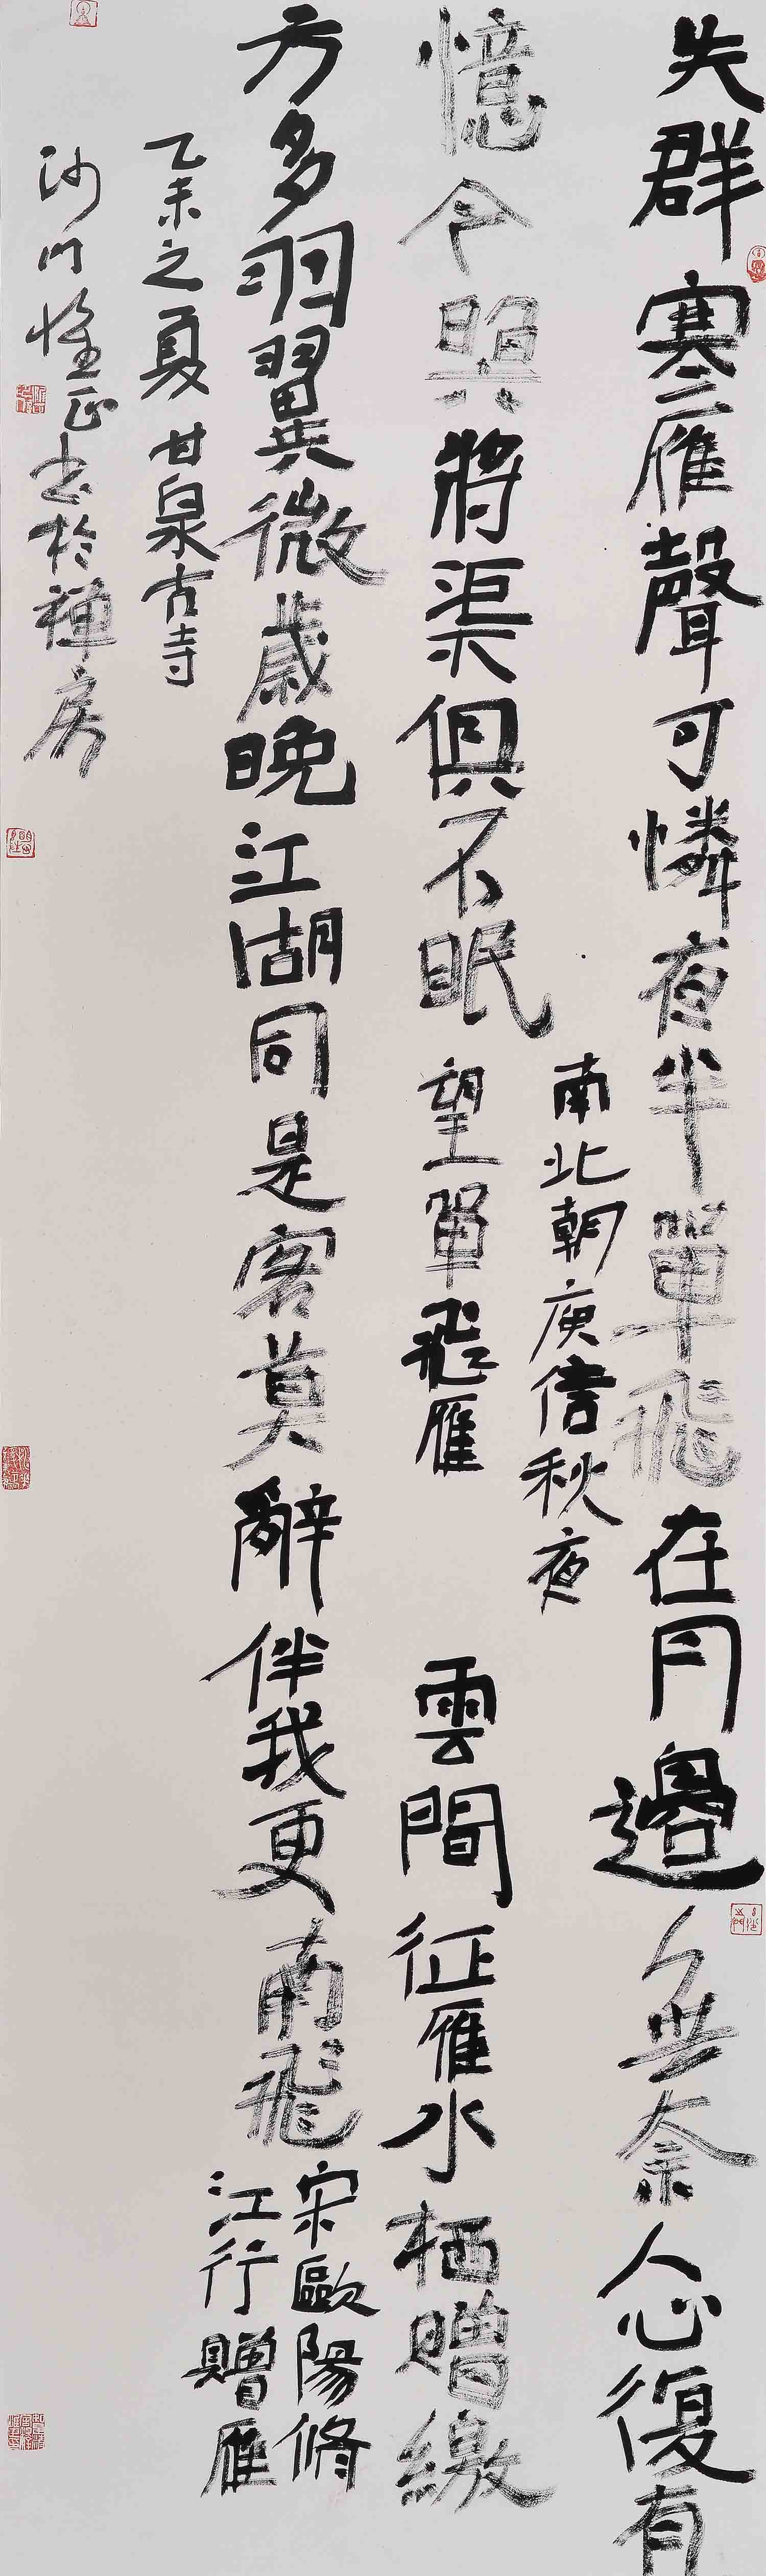 失群寒雁聲可憐夜半單飛在月邊無奈人心復有
憶令暝將渠俱不眠
南北朝庾信秋夜
望單飛雁
雲間征雁水栖贈繳
方多羽翼微歲晚江湖同是客莫辭伴我更南飛
宋歐陽修
江行贈雁
乙未之夏甘泉古寺
沙門惟正書於禪房